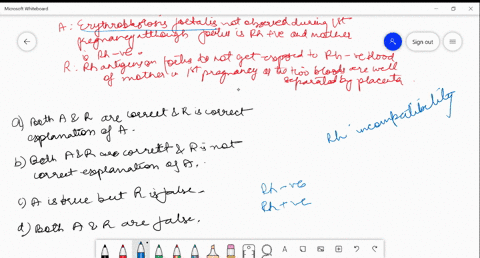 Microsoft Whiteboard
A: Erythroblastosis foetalis not observed during 1st
pregnancy although foetus is Rh +ve and mother
is Rh -ve.
R: Rh antigens on foetus do not get exposed to Rh -ve blood
of mother in 1st pregnancy as the two bloods are well
separated by placenta.
Sign out
Rh incompatibility
a) Both A & R are correct & R is correct
explanation of A.
b) Both A & R are correct & R is not
correct explanation of A.
c) A is true but R is false.
d) Both A & R are false.
Rh -ve
Rh +ve